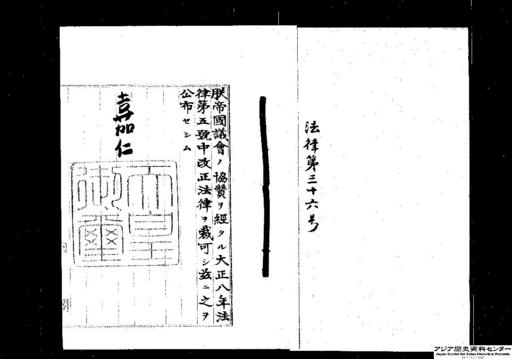 法律第三十六号
朕帝國議會ノ協賛ヲ經タル大正八年法
律第五號中改正法律ヲ裁可シ茲ニ之ヲ
公布セシム
嘉仁
天皇御璽
アジア歴史資料センター
Japan Center for Asian Historical Records